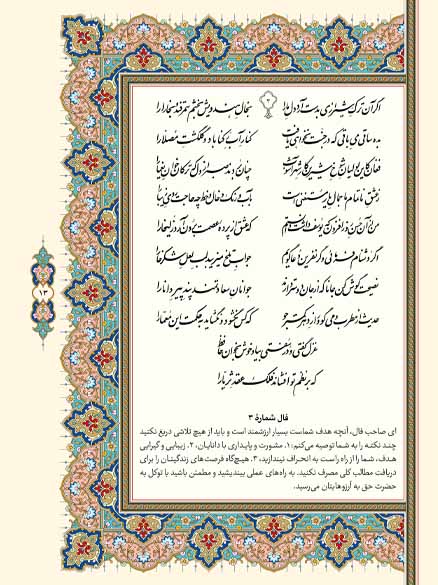 ۳
اگر آن ترک شیرازی بدست آرد دل ما را بخال هندویش بخشم سمرقند و بخارا را
بده ساقی می باقی که در جنت نخواهی یافت کنار آب رکناباد و گلگشت مصلا را
فغان کاین لولیان شوخ شیرین‌کار شهرآشوب چنان بردند صبر از دل که ترکان خوان یغما را
ز عشق ناتمام ما جمال یار مستغنی است به آب و رنگ و خال و خط چه حاجت روی زیبا را
من از آن حسن روزافزون که یوسف داشت دانستم که عشق از پرده عصمت برون آرد زلیخا را
اگر دشنام فرمایی و گر نفرین دعا گویم جواب تلخ میزیبد لب لعل شکرخا را
نصیحت گوش کن جانا که از جان دوستتر دارند جوانان سعادتمند پند پیر دانا را
حدیث از مطرب و می گو و راز دهر کمتر جو که کس نگشود و نگشاید به حکمت این معما را
غزل گفتی و در سفتی بیا و خوش بخوان حافظ
که بر نظم تو افشاند فلک عقد ثریا را
فال شمارهٔ ۳
ای صاحب فال، آنچه هدف شماست بسیار ارزشمند است و باید از هیچ تلاشی دریغ نکنید
چند نکته را به شما توصیه می‌کنم: ۱. مشورت و پایداری با دانایان، ۲. زیبایی و گیرایی
هدف، شما را از راه راست به انحراف نیندازید، ۳. هیچ‌گاه فرصت‌های زندگیتان را برای
دریافت مطالب کلی مصرف نکنید. به راه‌های عملی بیندیشید و مطمئن باشید با توکل به
حضرت حق به آرزوهایتان می‌رسید.
۱۳